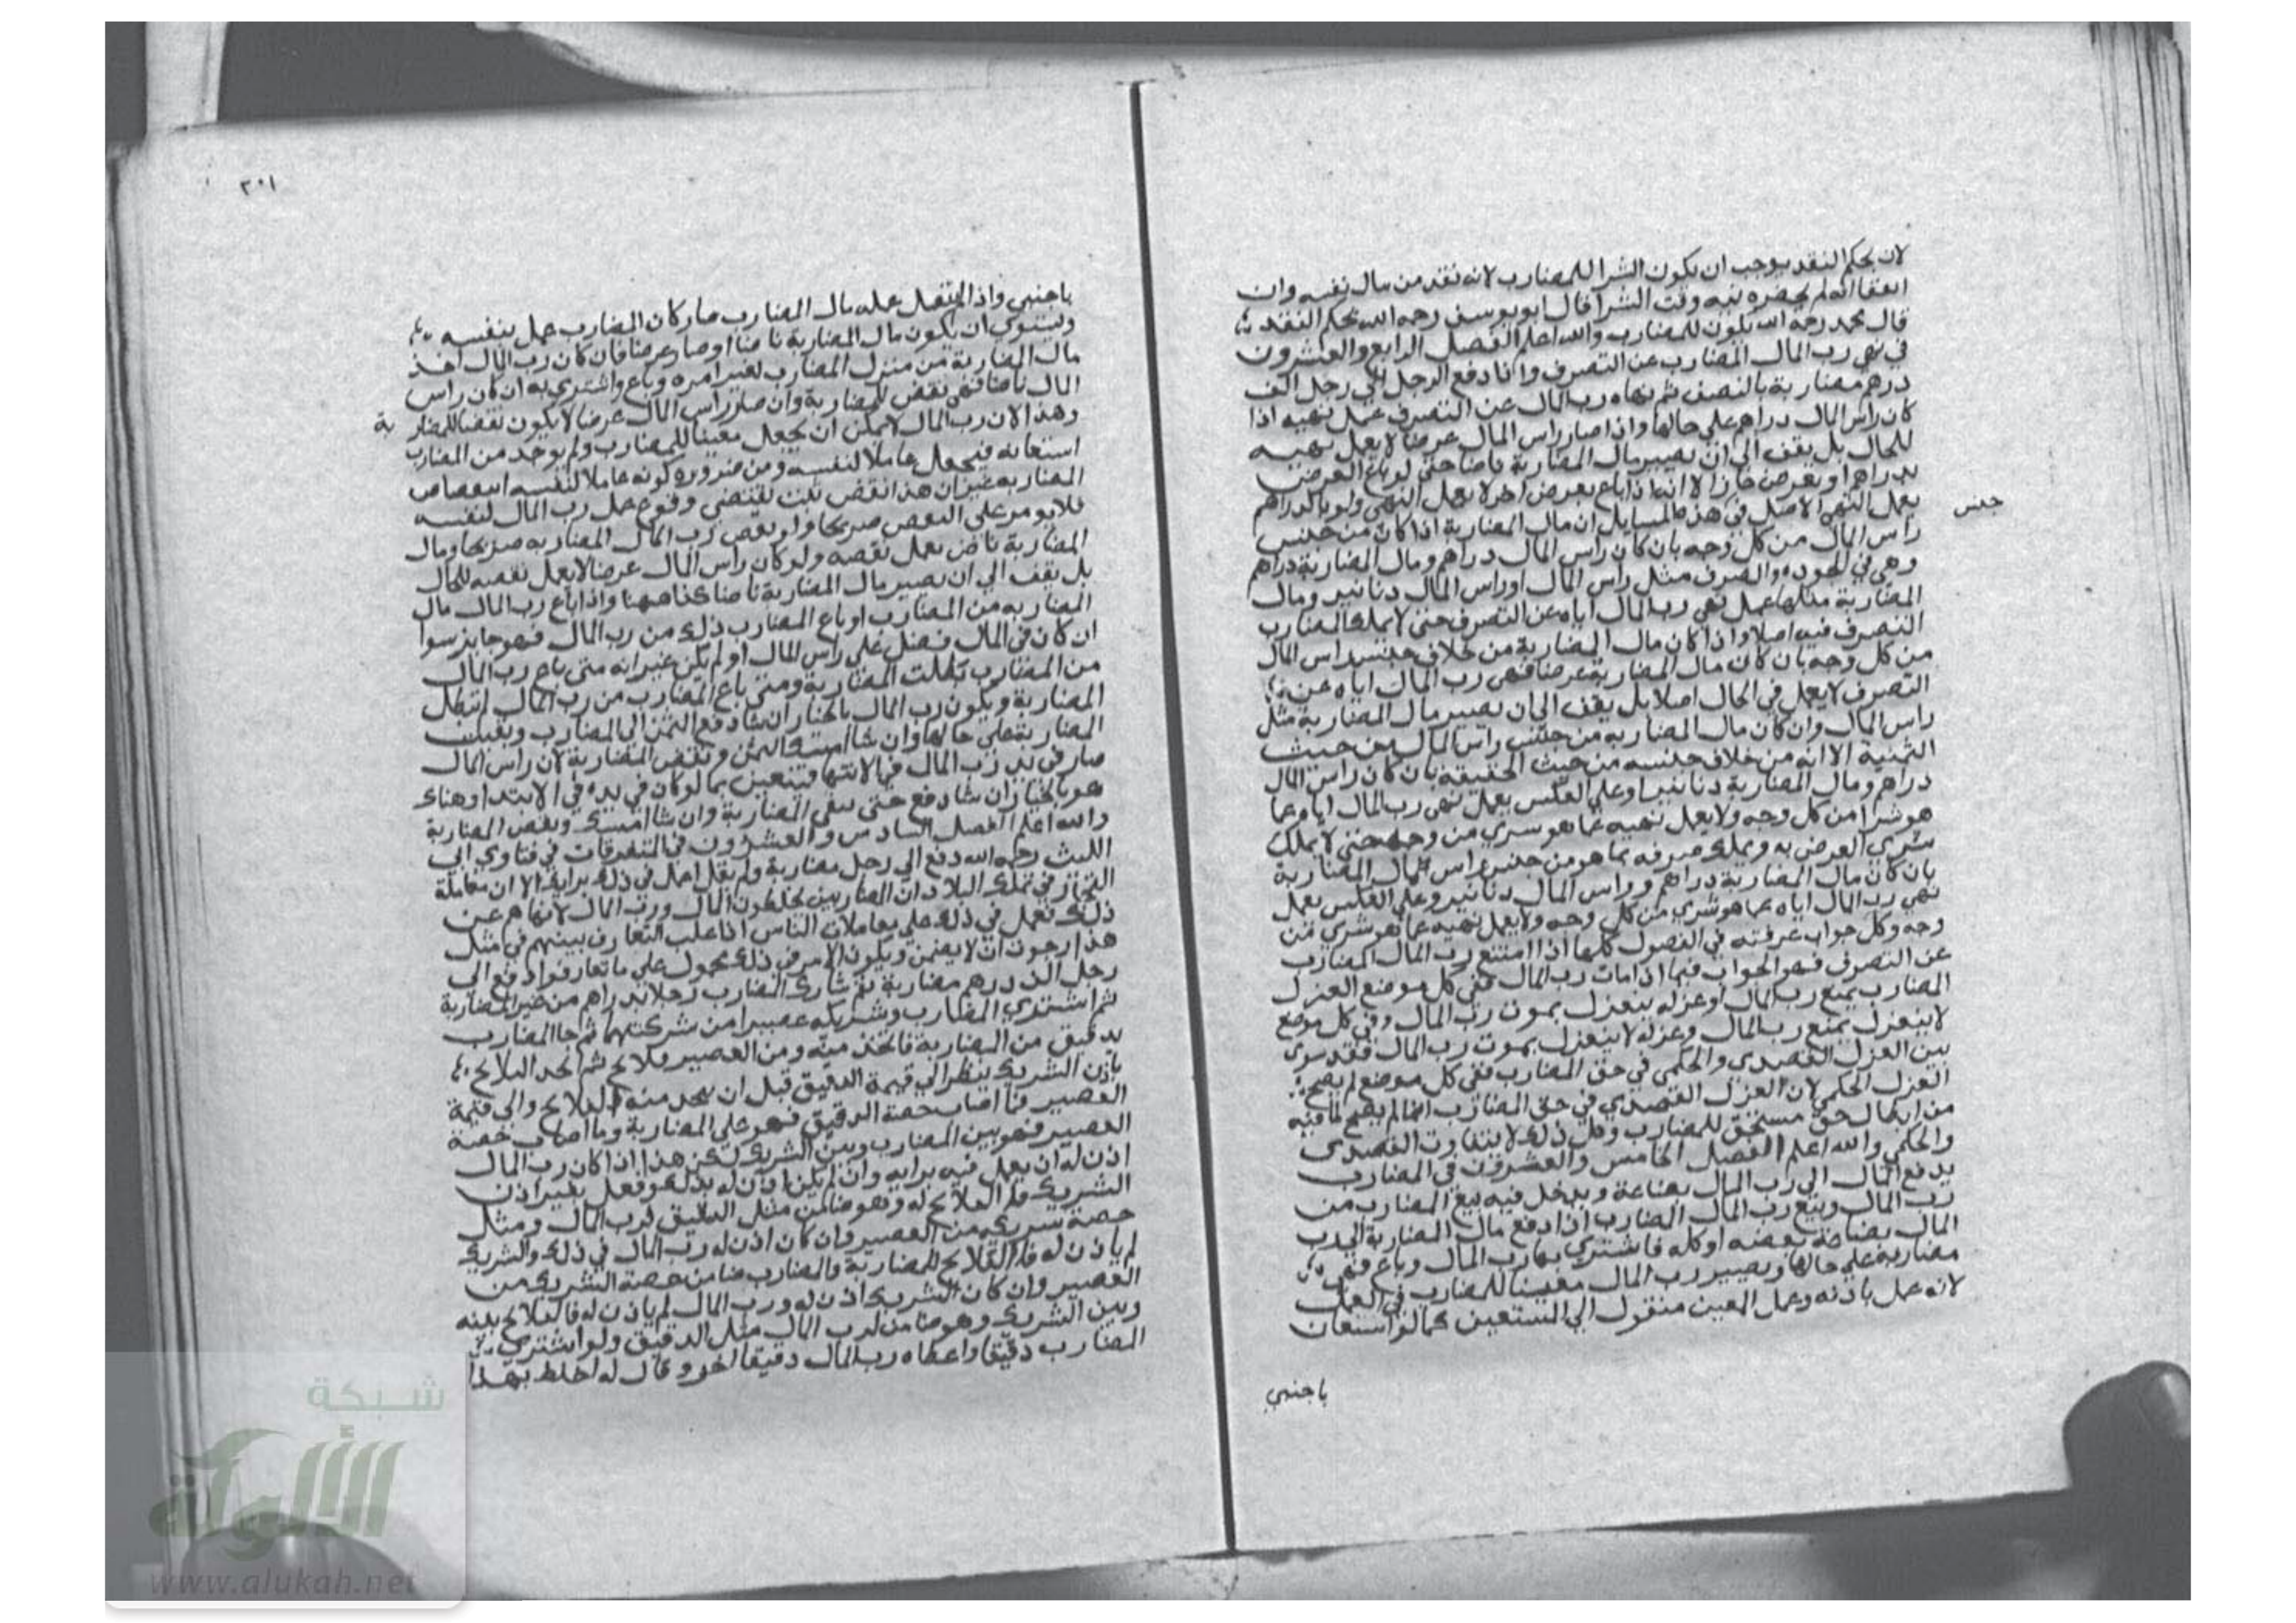 لان بحكم النقد يوجب ان يكون الشرا للمضارب لانه نقد من مال نفسه وان
اتفقا انه لم يحضره نية وقت الشرا قال ابو يوسف رحمه الله بحكم النقد
قال محمد رحمه الله يكون للمضارب والله اعلم الفصل الرابع والعشرون
في نهي رب المال المضارب عن التصرف واذا دفع الرجل الي رجل الف
درهم مضاربة بالنصف ثم نهاه رب المال عن التصرف عمل نهيه اذا
كان راس المال دراهم علي حالها واذا صار راس المال عرضا لا يعمل نهيه
للحال بل يقف الي ان يصير مال المضاربة ناضا حتي لو باع العرض
بدراهم او بعرض جاز الا انه اذا باع بعرض اخر لا يعمل النهي ولو بالدراهم
يعمل النهي الاصل في هذه المسايل ان مال المضاربة اذا كان من جنس
جنس
راس المال من كل وجه بان كان راس المال دراهم ومال المضاربة دراهم
وهي في الجوده والصرف مثل راس المال او راس المال دنانير ومال
المضاربة مثلها عمل نهي رب المال اياه عن التصرف حتي لا يملك المضارب
التصرف فيه اصلا واذا كان مال المضاربة من خلاف جنس راس المال
من كل وجه بان كان مال المضاربة عرضا فنهي رب المال اياه عن
التصرف لا يعمل في الحال اصلا بل يقف الي ان يصير مال المضاربة مثل
راس المال وان كان مال المضاربه من جنس راس المال من حيث
الثمنية الا انه من خلاف جنسه من حيث الحقيقة بان كان راس المال
دراهم ومال المضاربة دنانير او علي العكس يعمل نهي رب المال اياه عما
هو شرا من كل وجه ولا يعمل نهيه عما هو شري من وجه حتي لا يملك
شري العرض به ويملك صرفه بما هو من جنس راس مال المضاربة
بان كان مال المضاربة دراهم وراس المال دنانير وعلي العكس يعمل
نهي رب المال اياه عما هو شري من كل وجه ولا يعمل نهيه عما هو شري من
وجه وكل جواب عرفته في الفصول كلها اذا امتنع رب المال المضارب
عن التصرف فهو الجواب فيما اذا مات رب المال ففي كل موضع العزل
المضارب بمنع رب المال او عزله ينعزل بموت رب المال وفي كل موضع
لا ينعزل بمنع رب المال وعزله لا ينعزل بموت رب المال فقد سوي
بين العزل القصدي والحكمي في حق المضارب ففي كل موضع لم يصح
العزل الحكمي لان العزل القصدي في حق المضارب انما لم يصح لما فيه
من ابطال حق مستحق للمضارب وفي ذلك لا يتفاوت القصدي
والحكمي والله اعلم الفصل الخامس والعشرون في المضارب
يدفع المال الي رب المال بضاعة ويدخل فيه بيع المضارب من
رب المال وبيع رب المال المضارب اذا دفع مال المضاربة الي رب
المال بضاعة بعضه او كله فاشتري بها رب المال وباع فهي
مضاربة علي حالها ويصير رب المال معينا للمضارب في العمل
لانه عمل باذنه وعمل المعين منقول الي المستعين كما لو استعان
باجنبي
٣٠١
باجنبي واذا انتقل عمله مال المضارب صار كان المضارب عمل بنفسه
ويستوي ان يكون مال المضاربة ناضا او صار عرضا فان كان رب المال اخذ
مال المضاربة من منزل المضارب بغير امره وباع واشتري به ان كان راس
المال ناضا فهي نقض للمضاربة وان صار راس المال عرضا لا يكون نقضا للمضاربة
وهذا لان رب المال لا يمكن ان يجعل معينا للمضارب ولم يوجد من المضارب
استعانه فيجعل عاملا لنفسه ومن ضروره كونه عاملا لنفسه انتقاص
المضاربه غير ان هذا نقض ثبت بمقتضي وقوع عمل رب المال لنفسه
فلا يومر علي النقص صريحا ولو نقض رب المال المضاربه صريحا ومال
المضاربة ناض يعمل نقضه ولو كان راس المال عرضا لا يعمل نقضه للحال
بل يقف الي ان يصير مال المضاربة ناضا كذا ههنا واذا باع رب المال مال
المضاربه من المضارب او باع المضارب ذلك من رب المال فهو جايز سوا
ان كان في المال فضل علي راس المال او لم يكن غير انه متي باع رب المال
من المضارب بطلت المضاربة ومتي باع المضارب من رب المال لم تبطل
المضاربة ويكون رب المال بالخيار ان شا دفع الثمن الي المضارب وبقيت
المضاربة علي حالها وان شا امسك الثمن ونقض المضاربة لان راس المال
صار في يد رب المال في الانتها فيتعين بما لو كان في يده في الابتدا وهناك
هو بالخيار ان شا دفع حتي تبقي المضاربة وان شا امسك ونقض المضاربة
والله اعلم الفصل السادس والعشرون في المتفرقات في فتاوي ابي
الليث رحمه الله دفع الي رجل مضاربة ولم يقل اعمل في ذلك برايك الا ان معاملة
التجار في تلك البلاد ان المضاربين يخلطون المال ورب المال لا ينهاهم عن
ذلك فعمل في ذلك علي معاملات الناس اذا غلب التعارف بينهم في مثل
هذا ارجو ان لا يضمن ويكون الامر في ذلك محمول علي ما تعارفوا دفع الي
رجل الف درهم مضاربة ثم شارك المضارب رجلا بدراهم من غير المضاربة
ثم اشتري المضارب وشريكه عصيرا من شركتهما ثم جا المضارب
بدقيق من المضاربة فاتخذ منه ومن العصير فلاتج ثم اتخذ الفلاتج
باذن الشريك ينظر الي قيمة الدقيق قبل ان يتخذ منه الفلاتج والي قيمة
العصير فما اصاب حصة الدقيق فهو علي المضاربة وما اصاب حصة
العصير فهو بين المضارب وبين الشريك لكن هذا اذا كان رب المال
اذن له ان يعمل فيه برايه وان لم يكن اذن له بذلك وفعل بغير اذن
الشريك فالفلاتج له وهو ضامن مثل الدقيق لرب المال ومثل
حصة شريكه من العصير وان كان اذن له رب المال في ذلك والشريك
لم ياذن له فالفلاتج للمضاربة والمضارب ضامن حصة الشريك من
العصير وان كان الشريك اذن له ورب المال لم ياذن له فالفلاتج بينه
وبين الشريك وهو ضامن لرب المال مثل الدقيق ولو اشتري
المضارب دقيقا واعطاه رب المال دقيقا اخر وقال له اخلط بهذا
شبكة
الألوكة
www.alukah.net